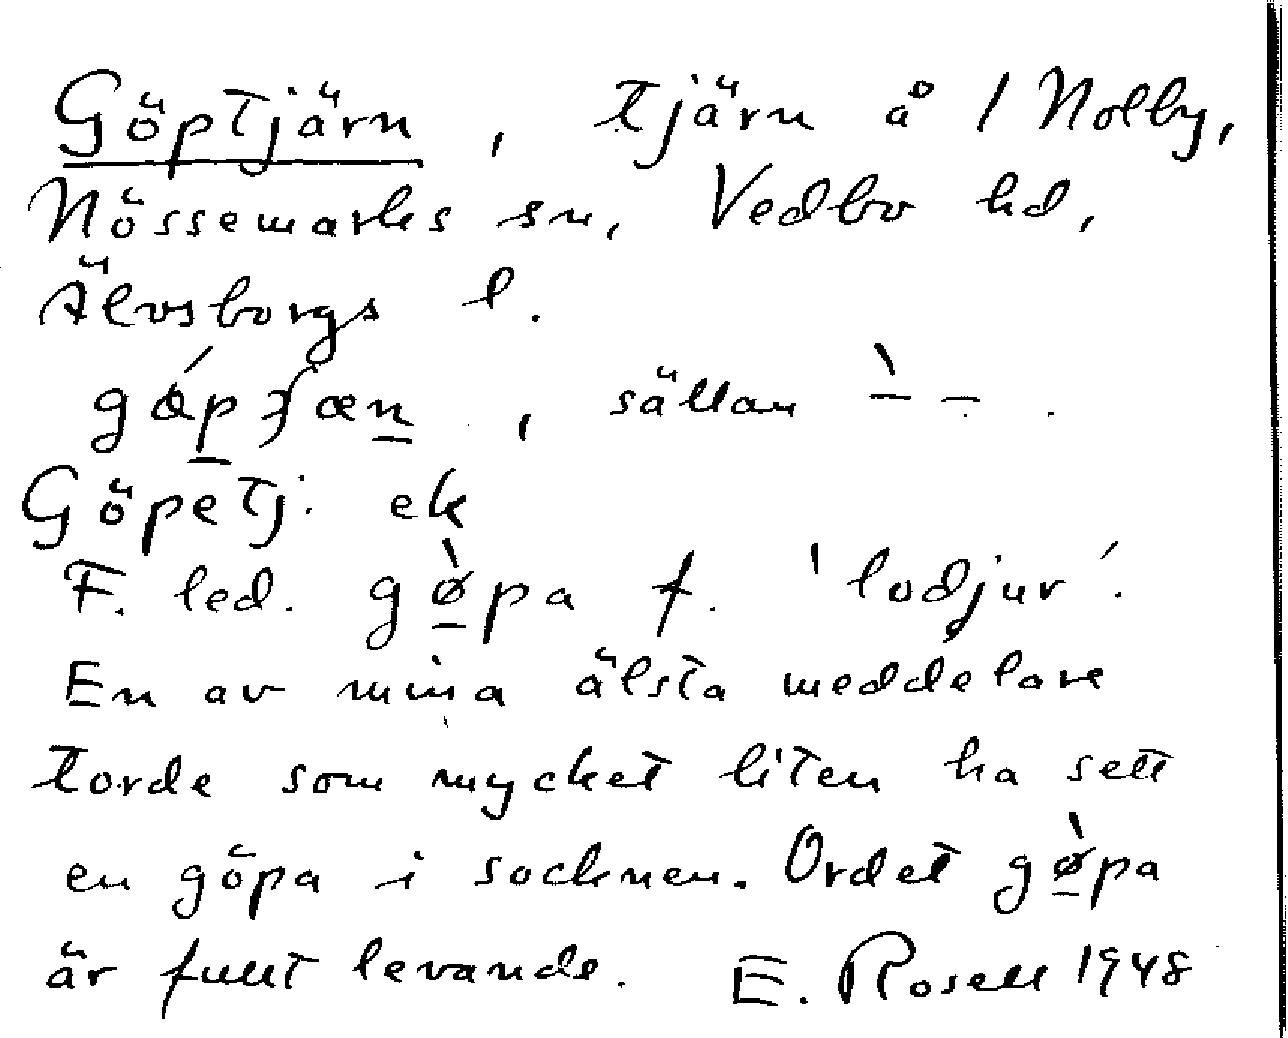 Göptjärn, tjärn å 1 Nolby,
Nössemarks sn, Vedbo hd,
Älvsborgs l.
sällan
Göpetj. ek
F. led. gø̀pa f. 'lodjur'.
En av mina älsta meddelare
torde som mycket liten ha sett
en göpa i socknen. Ordet gø̀pa
är fullt levande. E. Rosell 1948